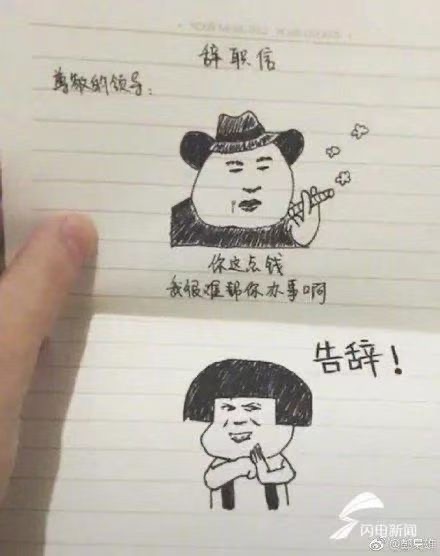 辞职信
尊敬的领导：
你这点钱
我很难帮你办事啊
告辞！
闪电新闻